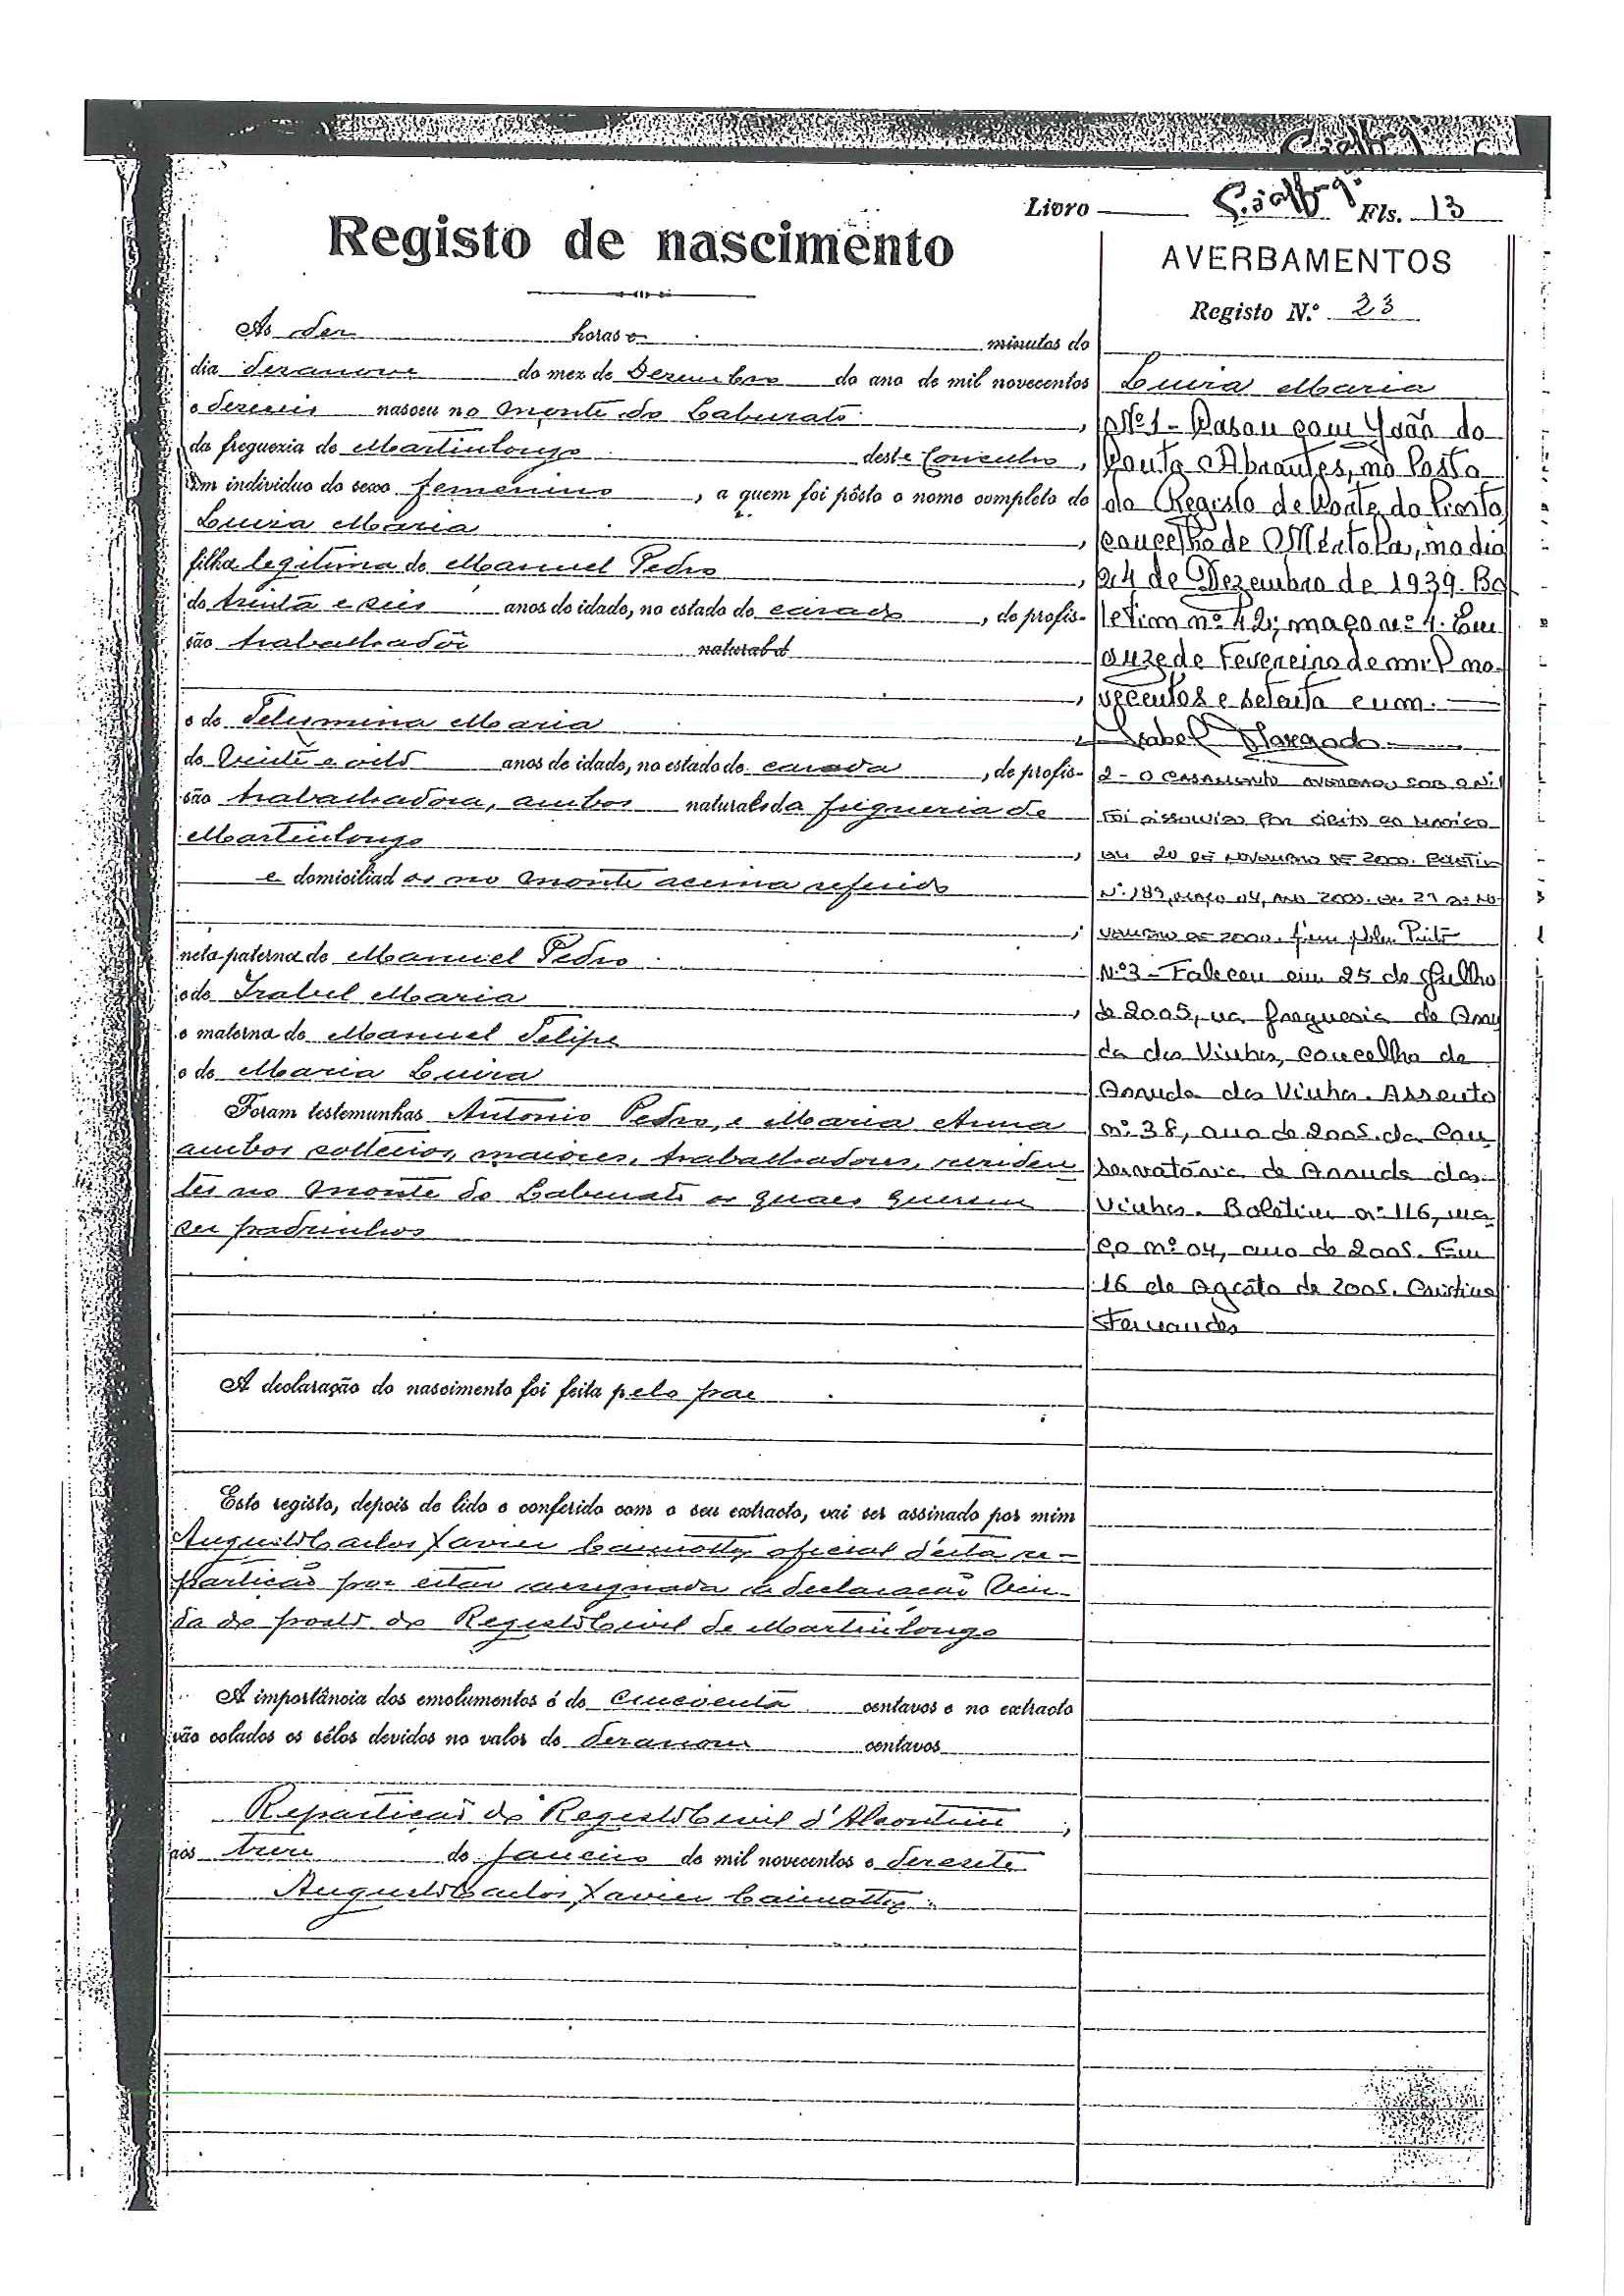 Livro
Fls. 13
Registo de nascimento
As dez horas e minutos do
dia dezanove do mez de Dezembro do ano de mil novecentos
e dezeseis nasceu no Monte do Laburato
da freguezia de Martinlongo deste Concelho,
um individuo do sexo femenino, a quem foi pôsto o nome completo de
Luiza Maria,
filha legitima de Manuel Pedro,
de trinta e seis anos de idade, no estado de casado, de profis-
são trabalhador natural d
,
e de Felismina Maria,
de Vinte e oito anos de idade, no estado de casada, de profis-
são trabalhadora, ambos naturaes da freguezia de
Martinlongo,
e domiciliados no Monte acima referido
;
neta paterna de Manuel Pedro
e de Izabel Maria,
e materna de Manuel Felipe
e de Maria Luiza
Foram testemunhas Antonio Pedro, e Maria Anna
ambos solteiros, maiores, trabalhadores, residen
tes no Monte do Laburato os quaes querem
ser padrinhos
A declaração do nascimento foi feita pelo pae
Este registo, depois de lido e conferido com o seu extracto, vai ser assinado por mim
Augusto Carlos Xavier oficial d'esta re-
partição por estar assignada a declaração vin-
da do posto do Registo Civil de Martinlongo
A importância dos emolumentos é de cincoenta centavos e no extracto
vão colados os sêlos devidos no valor de dezanove centavos
Repartição do Registo Civil d'Alcoutim,
aos treze de Janeiro de mil novecentos e dezesete
Augusto Carlos Xavier
AVERBAMENTOS
Registo N.º 23
Luiza Maria
Nº 1 - Casou com João da
Costa Abrantes, no Posto
do Registo de Corte do Pinto,
concelho de Mértola, no dia
24 de Dezembro de 1939. Bo
letim nº 42, maço nº 4. Em
onze de Fevereiro de mil no-
vecentos e setenta e um.
Isabel Margado
2 - O casamento averbado sob o nº 1
foi dissolvido por óbito do marido
em 20 de Novembro de 2000. Boletim
Nº 189, maço 04, ano 2000. Em 29 de No
vembro de 2000. Pinto
Nº 3 - Faleceu em 25 de Julho
de 2005, na freguesia de Arru
da dos Vinhos, concelho de
Arruda dos Vinhos. Assento
nº 38, ano de 2005. da Con
servatória de Arruda dos
Vinhos. Boletim nº 116, ma
ço nº 04, ano de 2005. Em
16 de Agosto de 2005. Cristina
Fernandes